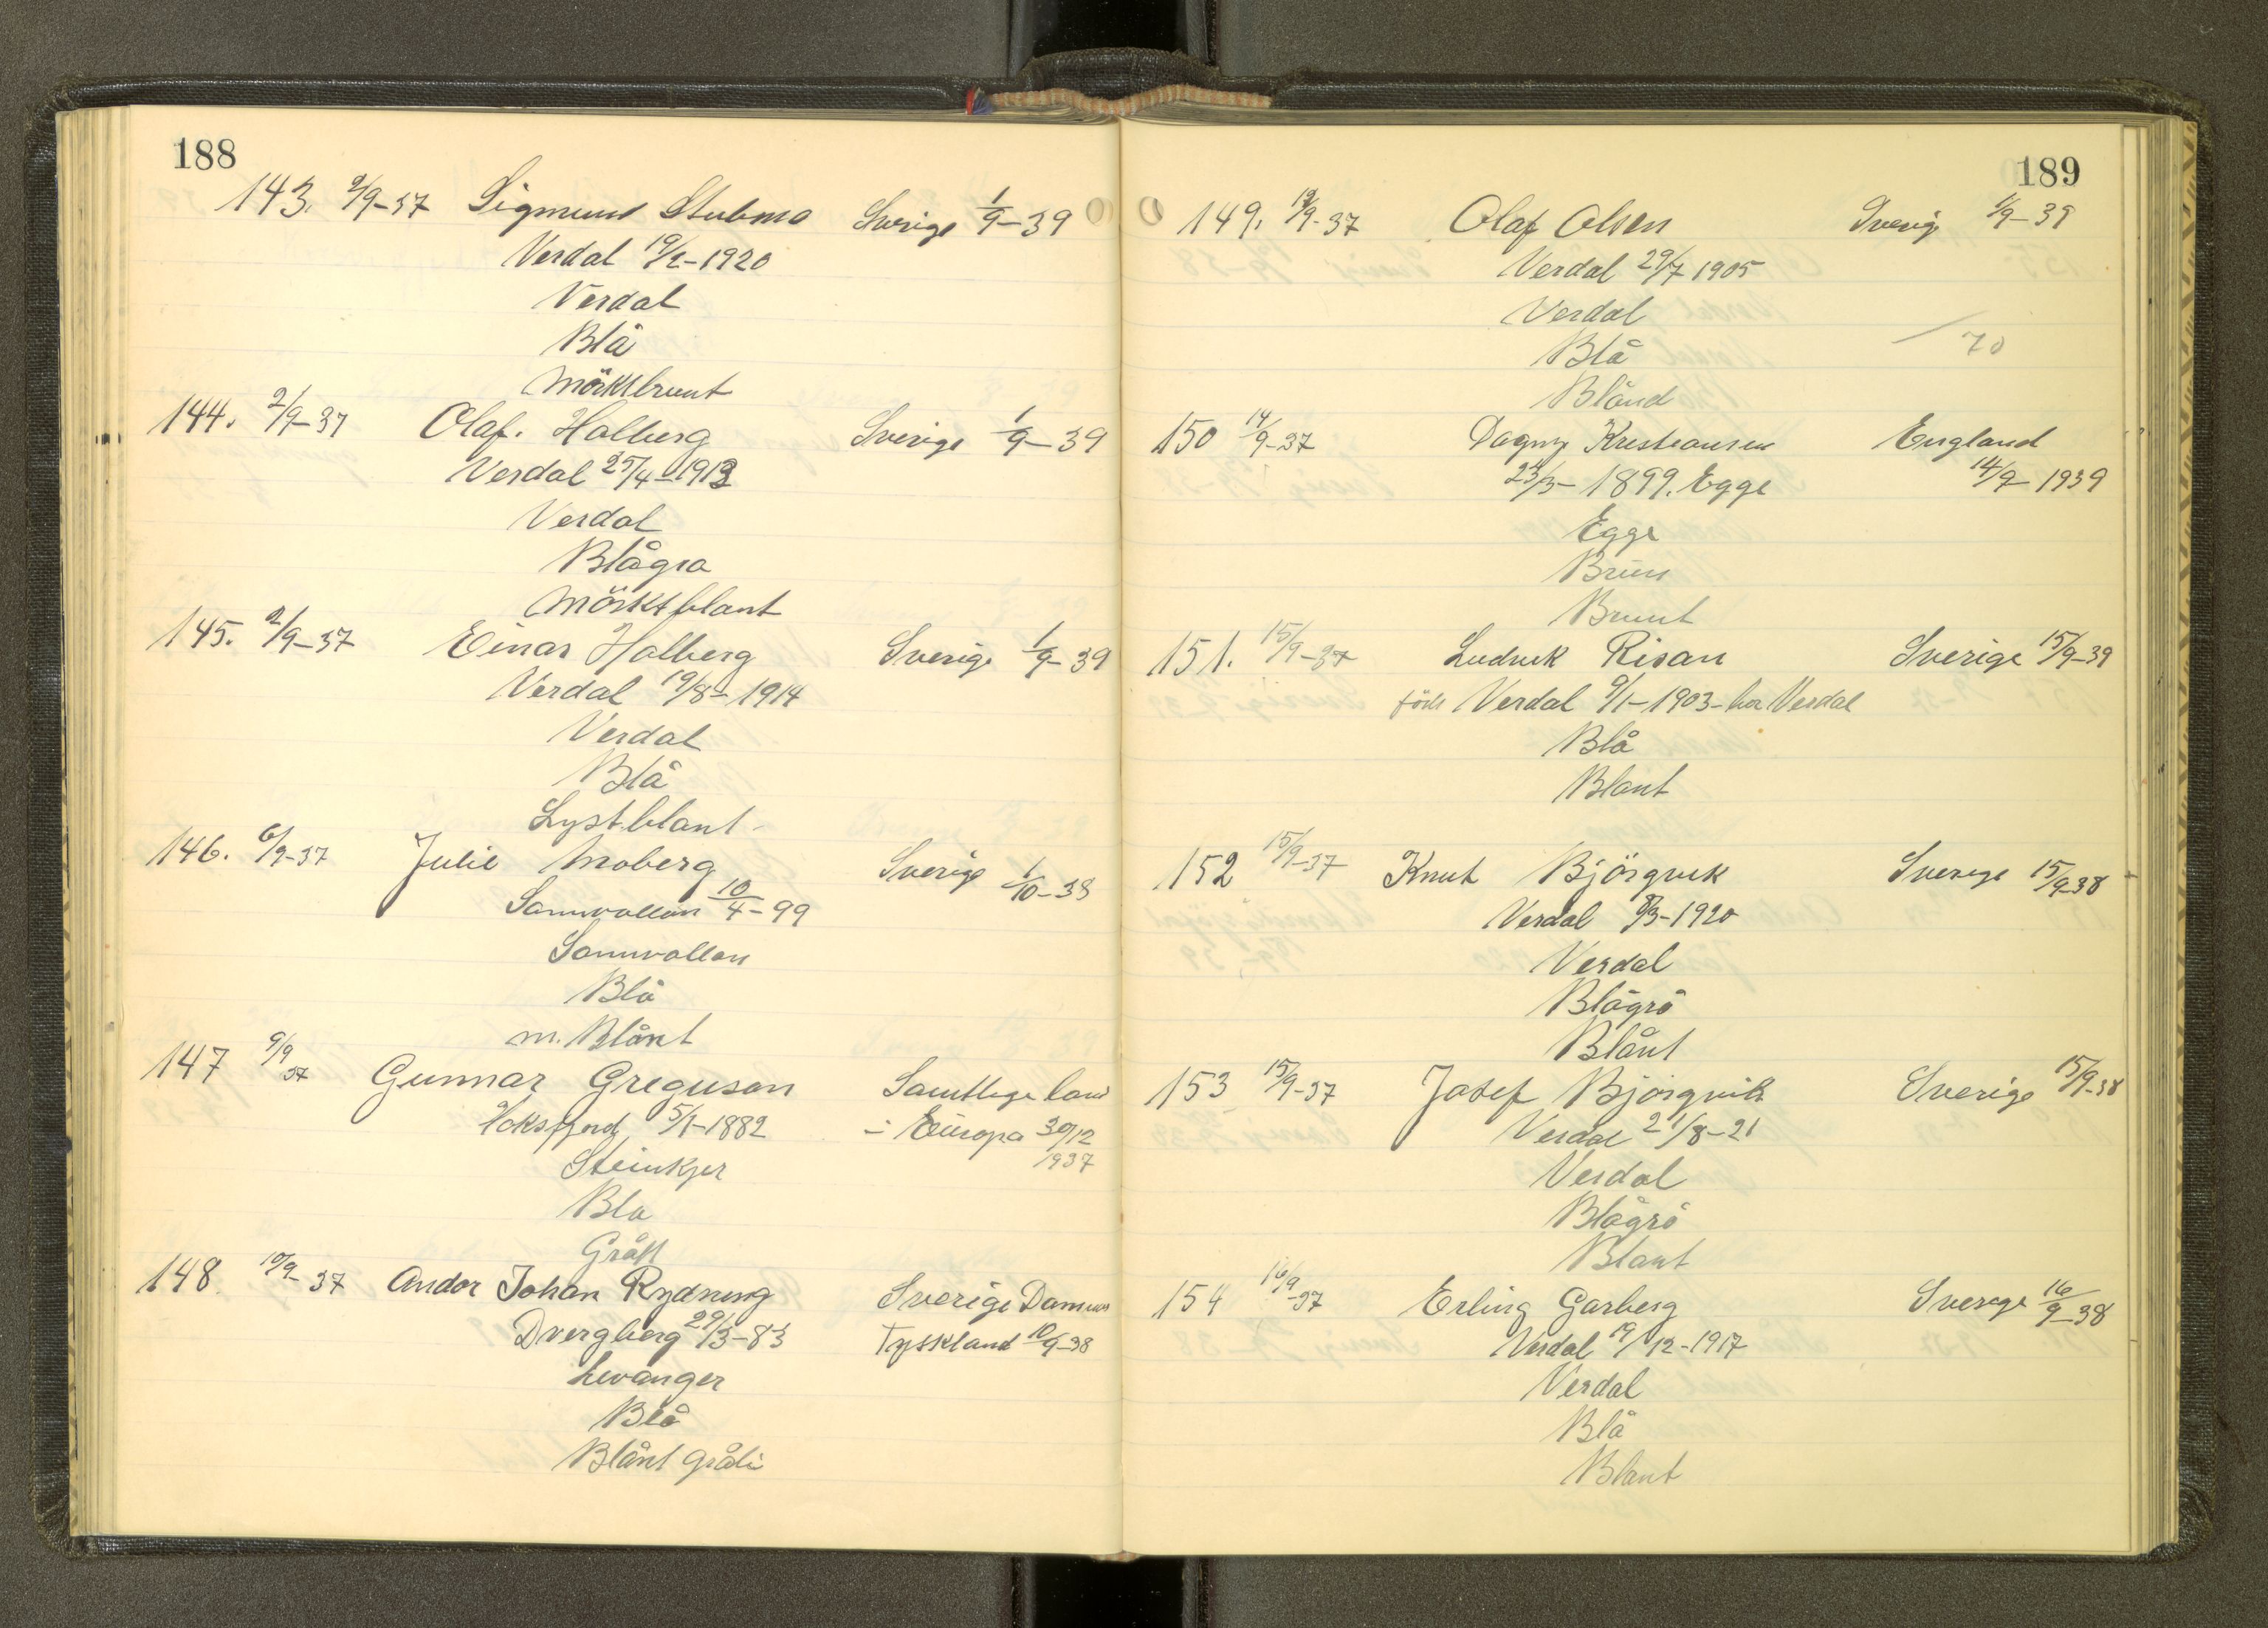 188
143. 2/9-37 Sigmund Stubmo Sverige 1/9-39
Verdal 19/2-1920
Verdal
Blå
Mörktbrunt
144. 2/9-37 Olaf. Halberg Sverige 1/9-39
Verdal 25/4-1912
Verdal
Blågra
Mörktblant
145. 2/9-37 Einar Halberg Sverige 1/9-39
Verdal 19/8-1914
Verdal
Blå
Lystblant-
146. 6/9-37 Julie Moberg Sverige 1/10-38
Sannvollan 10/4-99
Sannvollan
Blå
m. Blånt
147 9/9 37 Gunnar Greguson Samtlege land
5/1-1882 i Europa 30/12
Steinkjer 1937
Bla
Grått
148. 10/9-37 Andor Johan Rydning Sverige Danm
Dvergberg 29/3-83 Tyskland 10/9-38
Levanger
Blå
Blånt
189
149. 13/9-37 Olaf Olsen Sverig 1/9-39
Verdal 29/7 1905
Verdal
Blå 70
Blånd
150 14/9-37 Dagny Kristiansen England
23/3-1899. Egge 14/9-1939
Egge
Brun
Brunt
151. 15/9-37 Ludvik Risan Sverige 15/9-39
född Verdal 9/1-1903- bor Verdal
Blå
Blant
152 15/9-37 Knut Björgvik Sverige 15/9-38
Verdal 8/3-1920
Verdal
Blågrå
Blånt
153 15/9-37 Josef Bjørgvik Sverige 15/9-38
Verdal 21/8-21
Verdal
Blågrå
Blant
154 16/9-37 Erling Garberg Sverige 16/9-38
Verdal 19/12-1917
Verdal
Blå
Blant